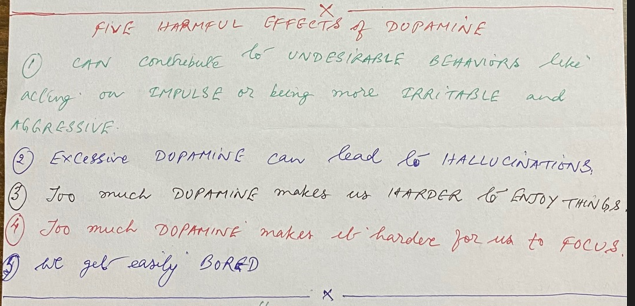 FIVE HARMFUL EFFECTS of DOPAMINE
① CAN contribute to UNDESIRABLE BEHAVIORS like
acting on IMPULSE or being more IRRITABLE and
AGGRESSIVE.
② Excessive DOPAMINE can lead to HALLUCINATIONS
③ Too much DOPAMINE makes us HARDER to ENJOY THINGS.
④ Too much DOPAMINE makes it harder for us to FOCUS.
⑤ we get easily BORED